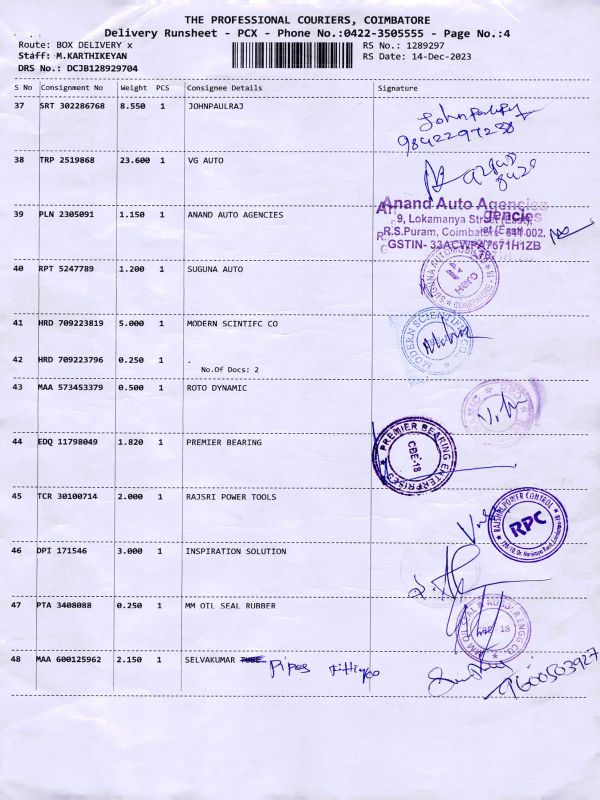 THE PROFESSIONAL COURIERS, COIMBATORE
Delivery Runsheet - PCX - Phone No.:0422-3505555 - Page No.:4
Route: BOX DELIVERY x RS No.: 1289297
Staff: M.KARTHIKEYAN RS Date: 14-Dec-2023
DRS No.: DCJB128929704
S No Consignment No Weight PCS Consignee Details Signature
37 SRT 302286768 8.550 1 JOHNPAULRAJ
Johnpaulraj
9842297238
38 TRP 2519868 23.600 1 VG AUTO
Anand Auto Agencies
39 PLN 2305091 1.150 1 ANAND AUTO AGENCIES
9, Lokamanya Street (East),
R.S.Puram, Coimbatore - 641 002.
GSTIN- 33ACWPA7671H1ZB
40 RPT 5247789 1.200 1 SUGUNA AUTO
SUGUNA AUTOMOBILES
Hero
41 HRD 709223819 5.000 1 MODERN SCINTIFC CO
MODERN SCIENTIFIC CO.
42 HRD 709223796 0.250 1 .
No.Of Docs: 2
43 MAA 573453379 0.500 1 ROTO DYNAMIC
44 EDQ 11798049 1.820 1 PREMIER BEARING
PREMIER BEARING ENTERPRISES
CBE-18
45 TCR 30100714 2.000 1 RAJSRI POWER TOOLS
RAJSHRI POWER CONTROL
RPC
46 DPI 171546 3.000 1 INSPIRATION SOLUTION
47 PTA 3408088 0.250 1 MM OIL SEAL RUBBER
MM OIL SEAL & RUBBER ENGG CO.
48 MAA 600125962 2.150 1 SELVAKUMAR TUBE Pipes Fittings
9600503927